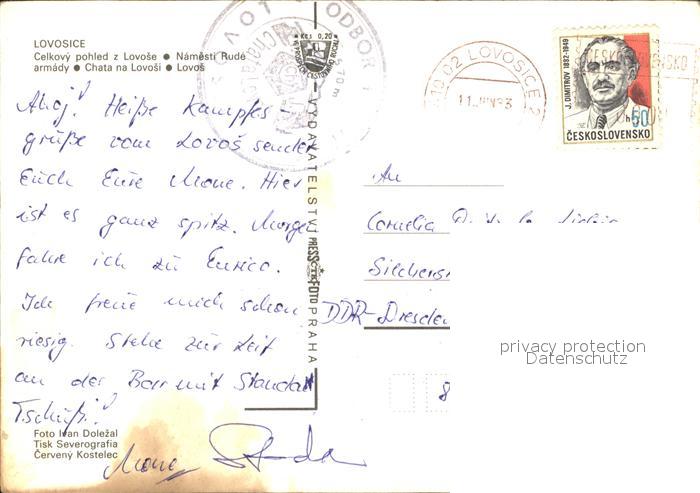 LOVOSICE
Celkový pohled z Lovoše ● Náměstí Rudé
armády ● Chata na Lovoši ● Lovoš
Ahoj! Heiße Kampfes-
grüße vom Lovoš sendet
Euch Eure Mone. Hier
ist es ganz spitz. Morgen
fahre ich zu Enrico.
Ich freue mich schon
riesig. Stehe zur Zeit
an der Bar mit
Tschüß!
Mone
Foto Ivan Doležal
Tisk Severografia
Červený Kostelec
Kčs 0,20
VYDAVATELSTVÍ PRESSFOTO PRAHA
ODBOR
410 02 LOVOSICE 2
J. DIMITROV 1882-1949
50 h
ČESKOSLOVENSKO
An
Cornelia
DDR-Dresden
8
privacy protection
Datenschutz